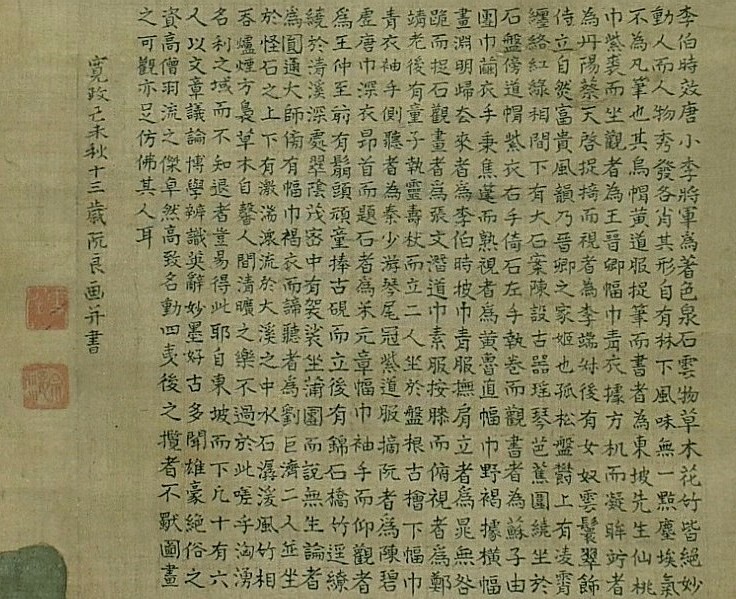 李伯時效唐小李將軍爲著色泉石雲物草木花竹皆絕妙
動人而人物秀發各肖其形自有林下風味無一點塵埃氣
不為凡筆也其烏帽黄道服捉筆而書者為東坡先生仙桃
巾紫裘而坐觀者為王晉卿幅巾青衣據方机而凝眸竚者
為丹陽蔡天啓捉掎而視者為李端叔後有女奴雲鬟翠飾
侍立自然富貴風韻乃晉卿之家姬也孤松盤欝上有凌霄
纏絡紅緑相間下有大石案陳設古器瑤琴芭蕉圍繞坐於
石盤傍道帽紫衣右手倚石左手執卷而觀書者為蘇子由
團巾繭衣手秉焦箑而熟視者為黄魯直幅巾野褐據横幅
畫淵明歸去來者爲李伯時披巾青服撫肩立者爲晁無咎
跪而捉石觀畫者爲張文潛道巾素服按膝而俯視者爲鄭
靖老後有童子執靈壽杖而立二人坐於盤根古檜下幅巾
青衣袖手側聽者為秦少游琴尾冠紫道服摘阮者爲陳碧
虛唐巾深衣昂首而題石者爲米元章幅巾袖手而仰觀者
爲王仲至前有鬅頭頑童捧古硯而立後有錦石橋竹逕繚
繞於清溪深處翠陰茂密中有袈裟坐蒲團而說無生論者
爲圓通大師傍有幅巾褐衣而諦聽者爲劉巨濟二人並坐
於怪石之上下有激湍潨流於大溪之中水石潺湲風竹相
吞爐煙方裊草木自馨人間清曠之樂不過於此嗟乎洶湧
名利之域而不知退者豈易得此耶自東坡而下凢十有六
人以文章議論博學辨識英辭妙墨好古多聞雄豪絕俗之
資高僧羽流之傑卓然高致名動四夷後之攬者不猒圖畫
之可觀亦足仿佛其人耳
寛政己未秋十三歲阮良画并書